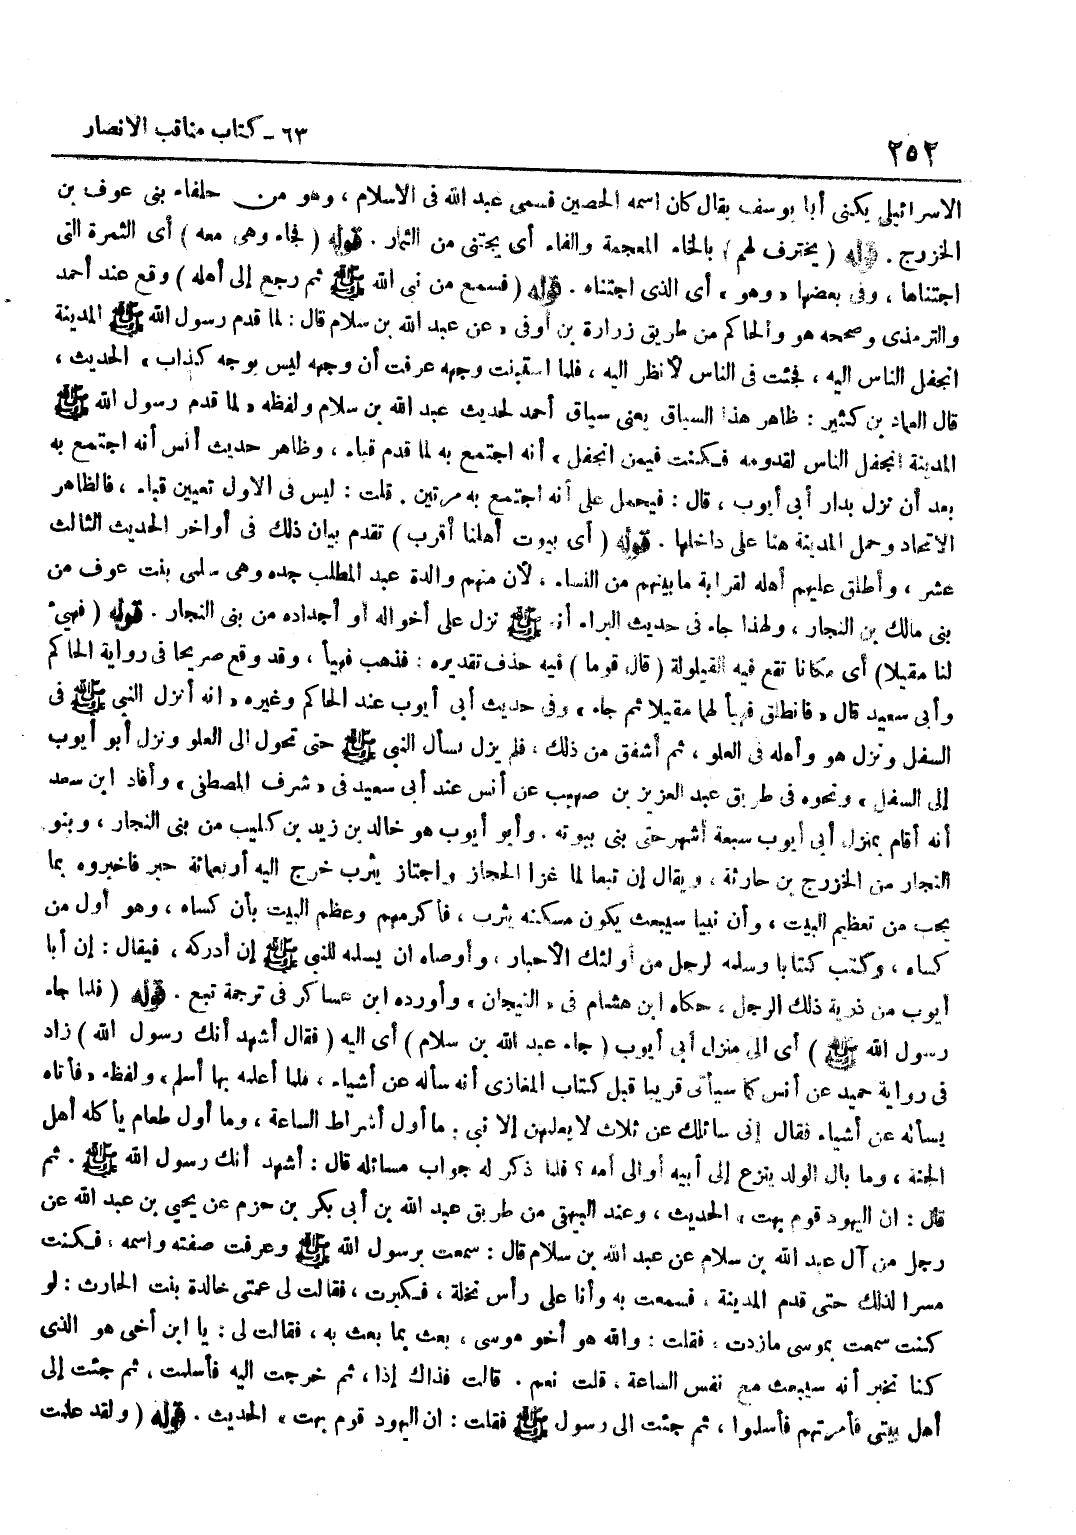 ٢٥٢
٦٣ - كتاب مناقب الانصار
الاسرائيلي يكنى أبا يوسف يقال كان اسمه الحصين فسمى عبد الله فى الاسلام ، وهو من حلفاء بنى عوف بن
الخزرج . قوله ( يخترف لهم ) بالخاء المعجمة والفاء أى يجتنى من الثمار . قوله ( فجاء وهى معه ) أى الثمرة التى
اجتناها ، وفى بعضها « وهو » أى الذى اجتناه . قوله ( فسمع من نبى الله ﷺ ثم رجع إلى أهله ) وقع عند أحمد
والترمذى وصححه هو والحاكم من طريق زرارة بن أوفى « عن عبد الله بن سلام قال : لما قدم رسول الله ﷺ المدينة
انجفل الناس اليه ، فجئت فى الناس لأنظر اليه ، فلما استبنت وجهه عرفت أن وجهه ليس بوجه كذاب » الحديث ،
قال العماد بن كثير : ظاهر هذا السياق يعنى سياق أحمد لحديث عبد الله بن سلام ولفظه « لما قدم رسول الله ﷺ
المدينة انجفل الناس لقدومه فكنت فيمن انجفل » أنه اجتمع به لما قدم قباء ، وظاهر حديث أنس أنه اجتمع به
بعد أن نزل بدار أبى أيوب ، قال : فيحمل على أنه اجتمع به مرتين . قلت : ليس فى الاول تعيين قباء ، فالظاهر
الاتحاد وحمل المدينة هنا على داخلها . قوله ( أى بيوت أهلنا أقرب ) تقدم بيان ذلك فى أواخر الحديث الثالث
عشر ، وأطلق عليهم أهله لقرابة ما بينهم من النساء ، لأن منهم والدة عبد المطلب جده وهى سلمى بنت عوف من
بنى مالك بن النجار ، ولهذا جاء فى حديث البراء أنه ﷺ نزل على أخواله أو أجداده من بنى النجار . قوله ( فهيئ
لنا مقيلا ) أى مكانا تقع فيه القيلولة ( قال قوما ) فيه حذف تقديره : فذهب فهيأ ، وقد وقع صريحا فى رواية الحاكم
وأبى سعيد قال « فانطلق فهيأ لهما مقيلا ثم جاء » وفى حديث أبى أيوب عند الحاكم وغيره « انه أنزل النبى ﷺ فى
السفل ونزل هو وأهله فى العلو ، ثم أشفق من ذلك ، فلم يزل يسأل النبى ﷺ حتى تحول الى العلو ونزل أبو أيوب
إلى السفل » ونحوه فى طريق عبد العزيز بن صهيب عن أنس عند أبى سعيد فى « شرف المصطفى » وأفاد ابن سعد
أنه أقام بمنزل أبى أيوب سبعة أشهر حتى بنى بيوته . وأبو أيوب هو خالد بن زيد بن كليب من بنى النجار ، وبنو
النجار من الخزرج بن حارثة ، ويقال إن تبعا لما غزا الحجاز واجتاز يثرب خرج اليه أربعمائة حبر فاخبروه بما
يجب من تعظيم البيت ، وأن نبيا سيبعث يكون مسكنه يثرب ، فأكرمهم وعظم البيت بأن كساه ، وهو أول من
كساه ، وكتب كتابا وسلمه لرجل من أولئك الأحبار ، وأوصاه ان يسلمه للنبى ﷺ إن أدركه ، فيقال : إن أبا
أيوب من ذرية ذلك الرجل ، حكاه ابن هشام فى « التيجان » وأورده ابن عساكر فى ترجمة تبع . قوله ( فلما جاء
رسول الله ﷺ ) أى الى منزل أبى أيوب ( جاء عبد الله بن سلام ) أى اليه ( فقال أشهد أنك رسول الله ) زاد
فى رواية حميد عن أنس كما سيأتى قريبا قبل كتاب المغازى أنه سأله عن أشياء ، فلما أعلمه بها أسلم ، ولفظه « فأتاه
يسأله عن أشياء فقال إنى سائلك عن ثلاث لا يعلمهن إلا نبى : ما أول أشراط الساعة ، وما أول طعام يأكله أهل
الجنة ، وما بال الولد ينزع إلى أبيه أو الى أمه ؟ فلما ذكر له جواب مسائله قال : أشهد أنك رسول الله ﷺ . ثم
قال : ان اليهود قوم بهت » الحديث ، وعند البيهقى من طريق عبد الله بن أبى بكر بن حزم عن يحيى بن عبد الله عن
رجل من آل عبد الله بن سلام عن عبد الله بن سلام قال : سمعت برسول الله ﷺ وعرفت صفته واسمه ، فكنت
مسرا لذلك حتى قدم المدينة ، فسمعت به وأنا على رأس نخلة ، فكبرت ، فقالت لى عمتى خالدة بنت الحارث : لو
كنت سمعت بموسى ما زدت ، فقلت : والله هو أخو موسى ، بعث بما بعث به ، فقالت لى : يا ابن أخى هو الذى
كنا نخبر أنه سيبعث مع نفس الساعة ، قلت نعم . قالت فذاك إذا ، ثم خرجت اليه فأسلمت ، ثم جئت إلى
أهل بيتى فأمرتهم فأسلموا ، ثم جئت الى رسول ﷺ فقلت : ان اليهود قوم بهت » الحديث . قوله ( ولقد علمت